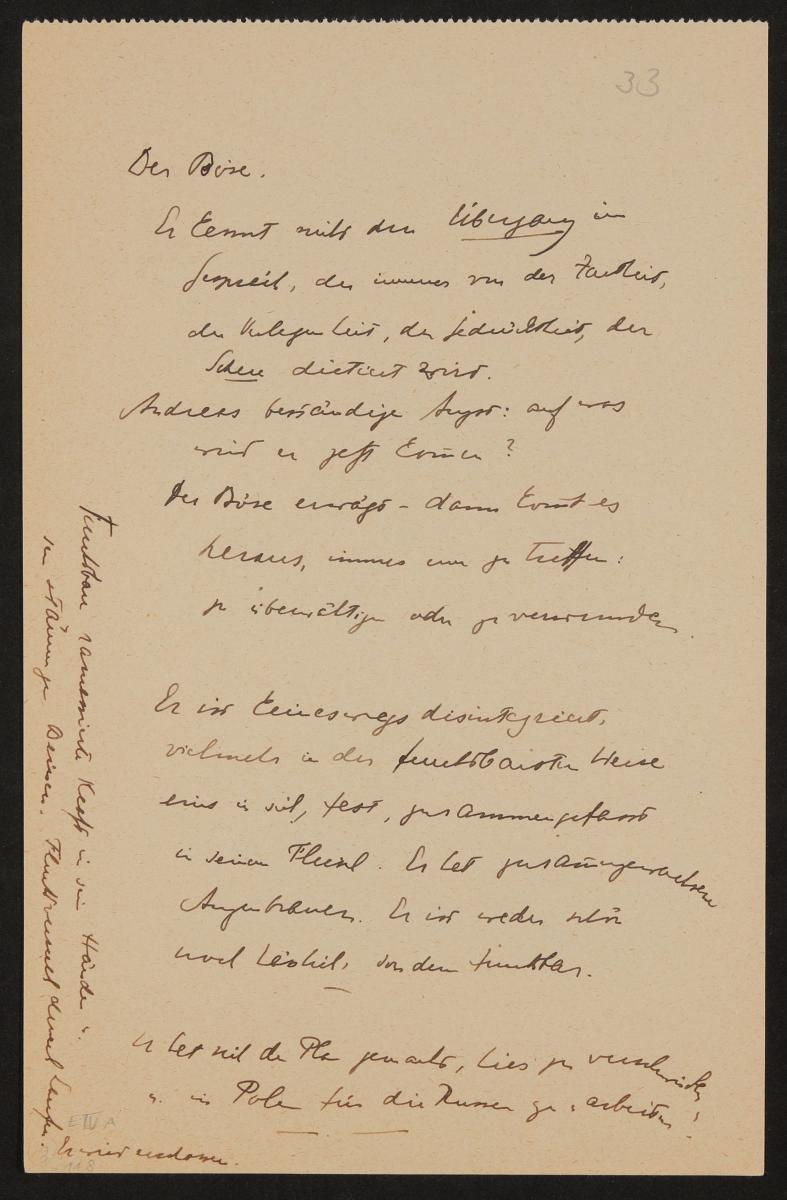 33
Der Böse.
Er kennt nicht den Übergang im
Gespräch, der immer von der Zartheit,
der Verlegenheit, der Gedrücktheit, der
Scheu dictiert wird.
Andreas beständige Angst: auf was
wird er jetzt kommen?
Der Böse erwägt – dann kommt es
heraus, immer um zu treffen:
zu überwältigen oder zu verwunden.
Er ist keineswegs disintegriert,
vielmehr in der furchtbarsten Weise
eins in sich, fest, zusammengefasst
in seinem Fluch. Er hat zusammengewachsene
Augenbrauen. Er ist weder schön
noch hässlich, sondern furchtbar.
Er hat sich den Plan gemacht, hier zu verschwinden
u. in Polen für die Russen zu arbeiten.
Furchtbare Kraft in den Händen u.
den stämmigen Beinen. Fluchtversuch durch Laufen.
Er wird
E IV A
118